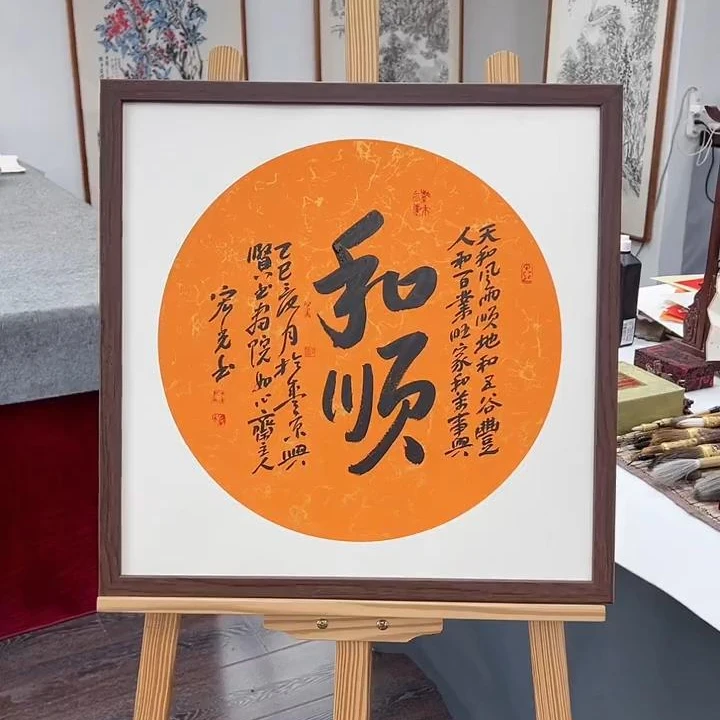 和顺
天和风雨顺地和五谷豐
人和百業旺家和萬事興
乙巳夏月於季京興
賢书畫院如心齋主人
宏光书